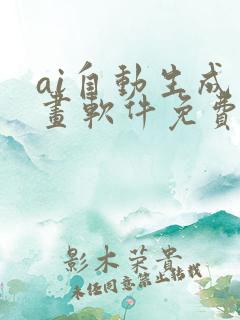 ai自動生成
畫軟件免費
影木荣貴
未经同意禁止转载